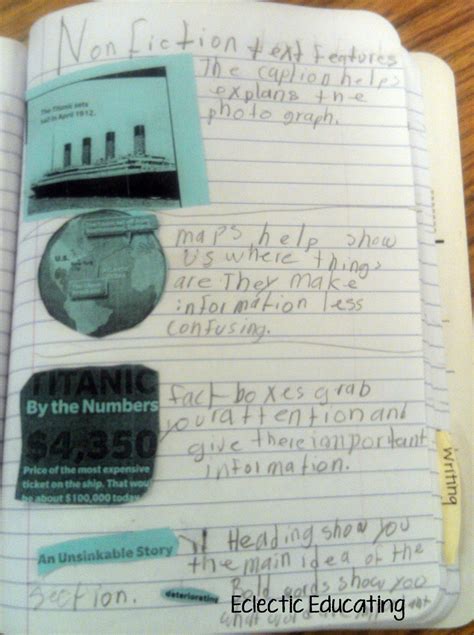 Nonfiction text features
The Titanic sets
sail in April 1912.
The caption helps
explans the
photo graph.
U.S.
New York
maps help show
Us where things
are They make
information less
confusing.
TITANIC
By the Numbers
$4,350
Price of the most expensive
ticket on the ship. That would
be about $100,000 today.
fact boxes grab
your attention and
give there important
information.
An Unsinkable Story
Heading show you
the main idea of the
section.
deteriorating
Bold words show you
what word are important
Writing
Eclectic Educating